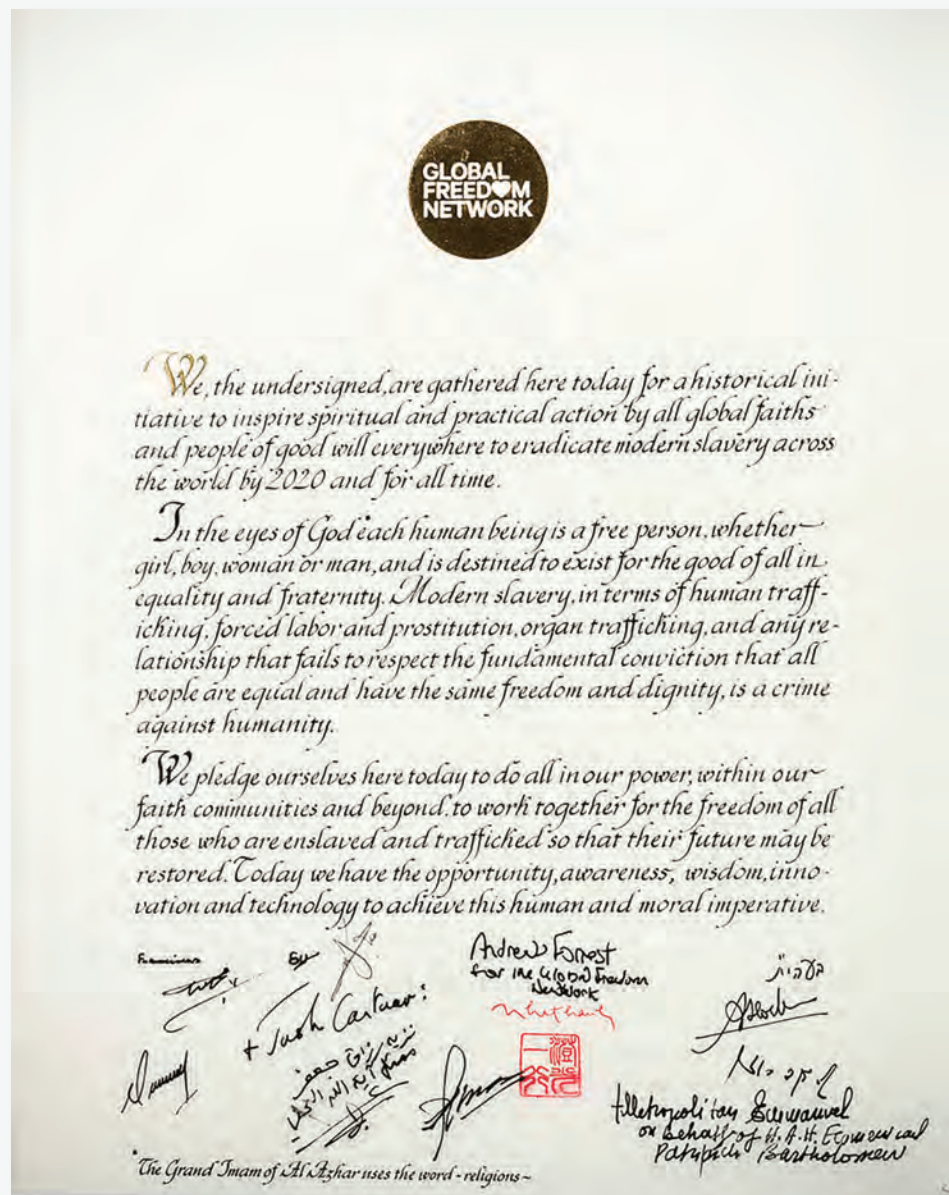 GLOBAL
FREEDOM
NETWORK
We, the undersigned, are gathered here today for a historical ini-
tiative to inspire spiritual and practical action by all global faiths
and people of good will everywhere to eradicate modern slavery across
the world by 2020 and for all time.
In the eyes of God* each human being is a free person, whether
girl, boy, woman or man, and is destined to exist for the good of all in
equality and fraternity. Modern slavery, in terms of human traff-
icking, forced labor and prostitution, organ trafficking, and any re-
lationship that fails to respect the fundamental conviction that all
people are equal and have the same freedom and dignity, is a crime
against humanity.
We pledge ourselves here today to do all in our power, within our
faith communities and beyond, to work together for the freedom of all
those who are enslaved and trafficked so that their future may be
restored. Today we have the opportunity, awareness, wisdom, inno-
vation and technology to achieve this human and moral imperative.
Franciscus
Andrew Forrest
for the Global Freedom
Network
Metropolitan Emmanuel
on behalf of H.A.H. Ecumenical
Patriarch Bartholomew
*The Grand Imam of Al Azhar uses the word - religions -